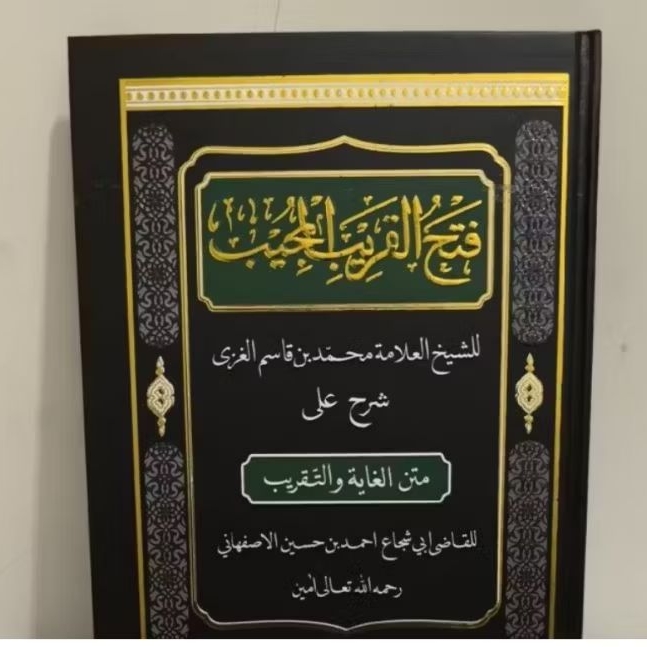 فَتْحُ القَرِيْبِ المُجِيْبِ
للشيخ العلامة محمّد بن قاسم الغزى
شرح على
متن الغاية والتّقريب
للقاضى ابي شجاع احمد بن حسين الاصفهاني
رحمه الله تعالى امين